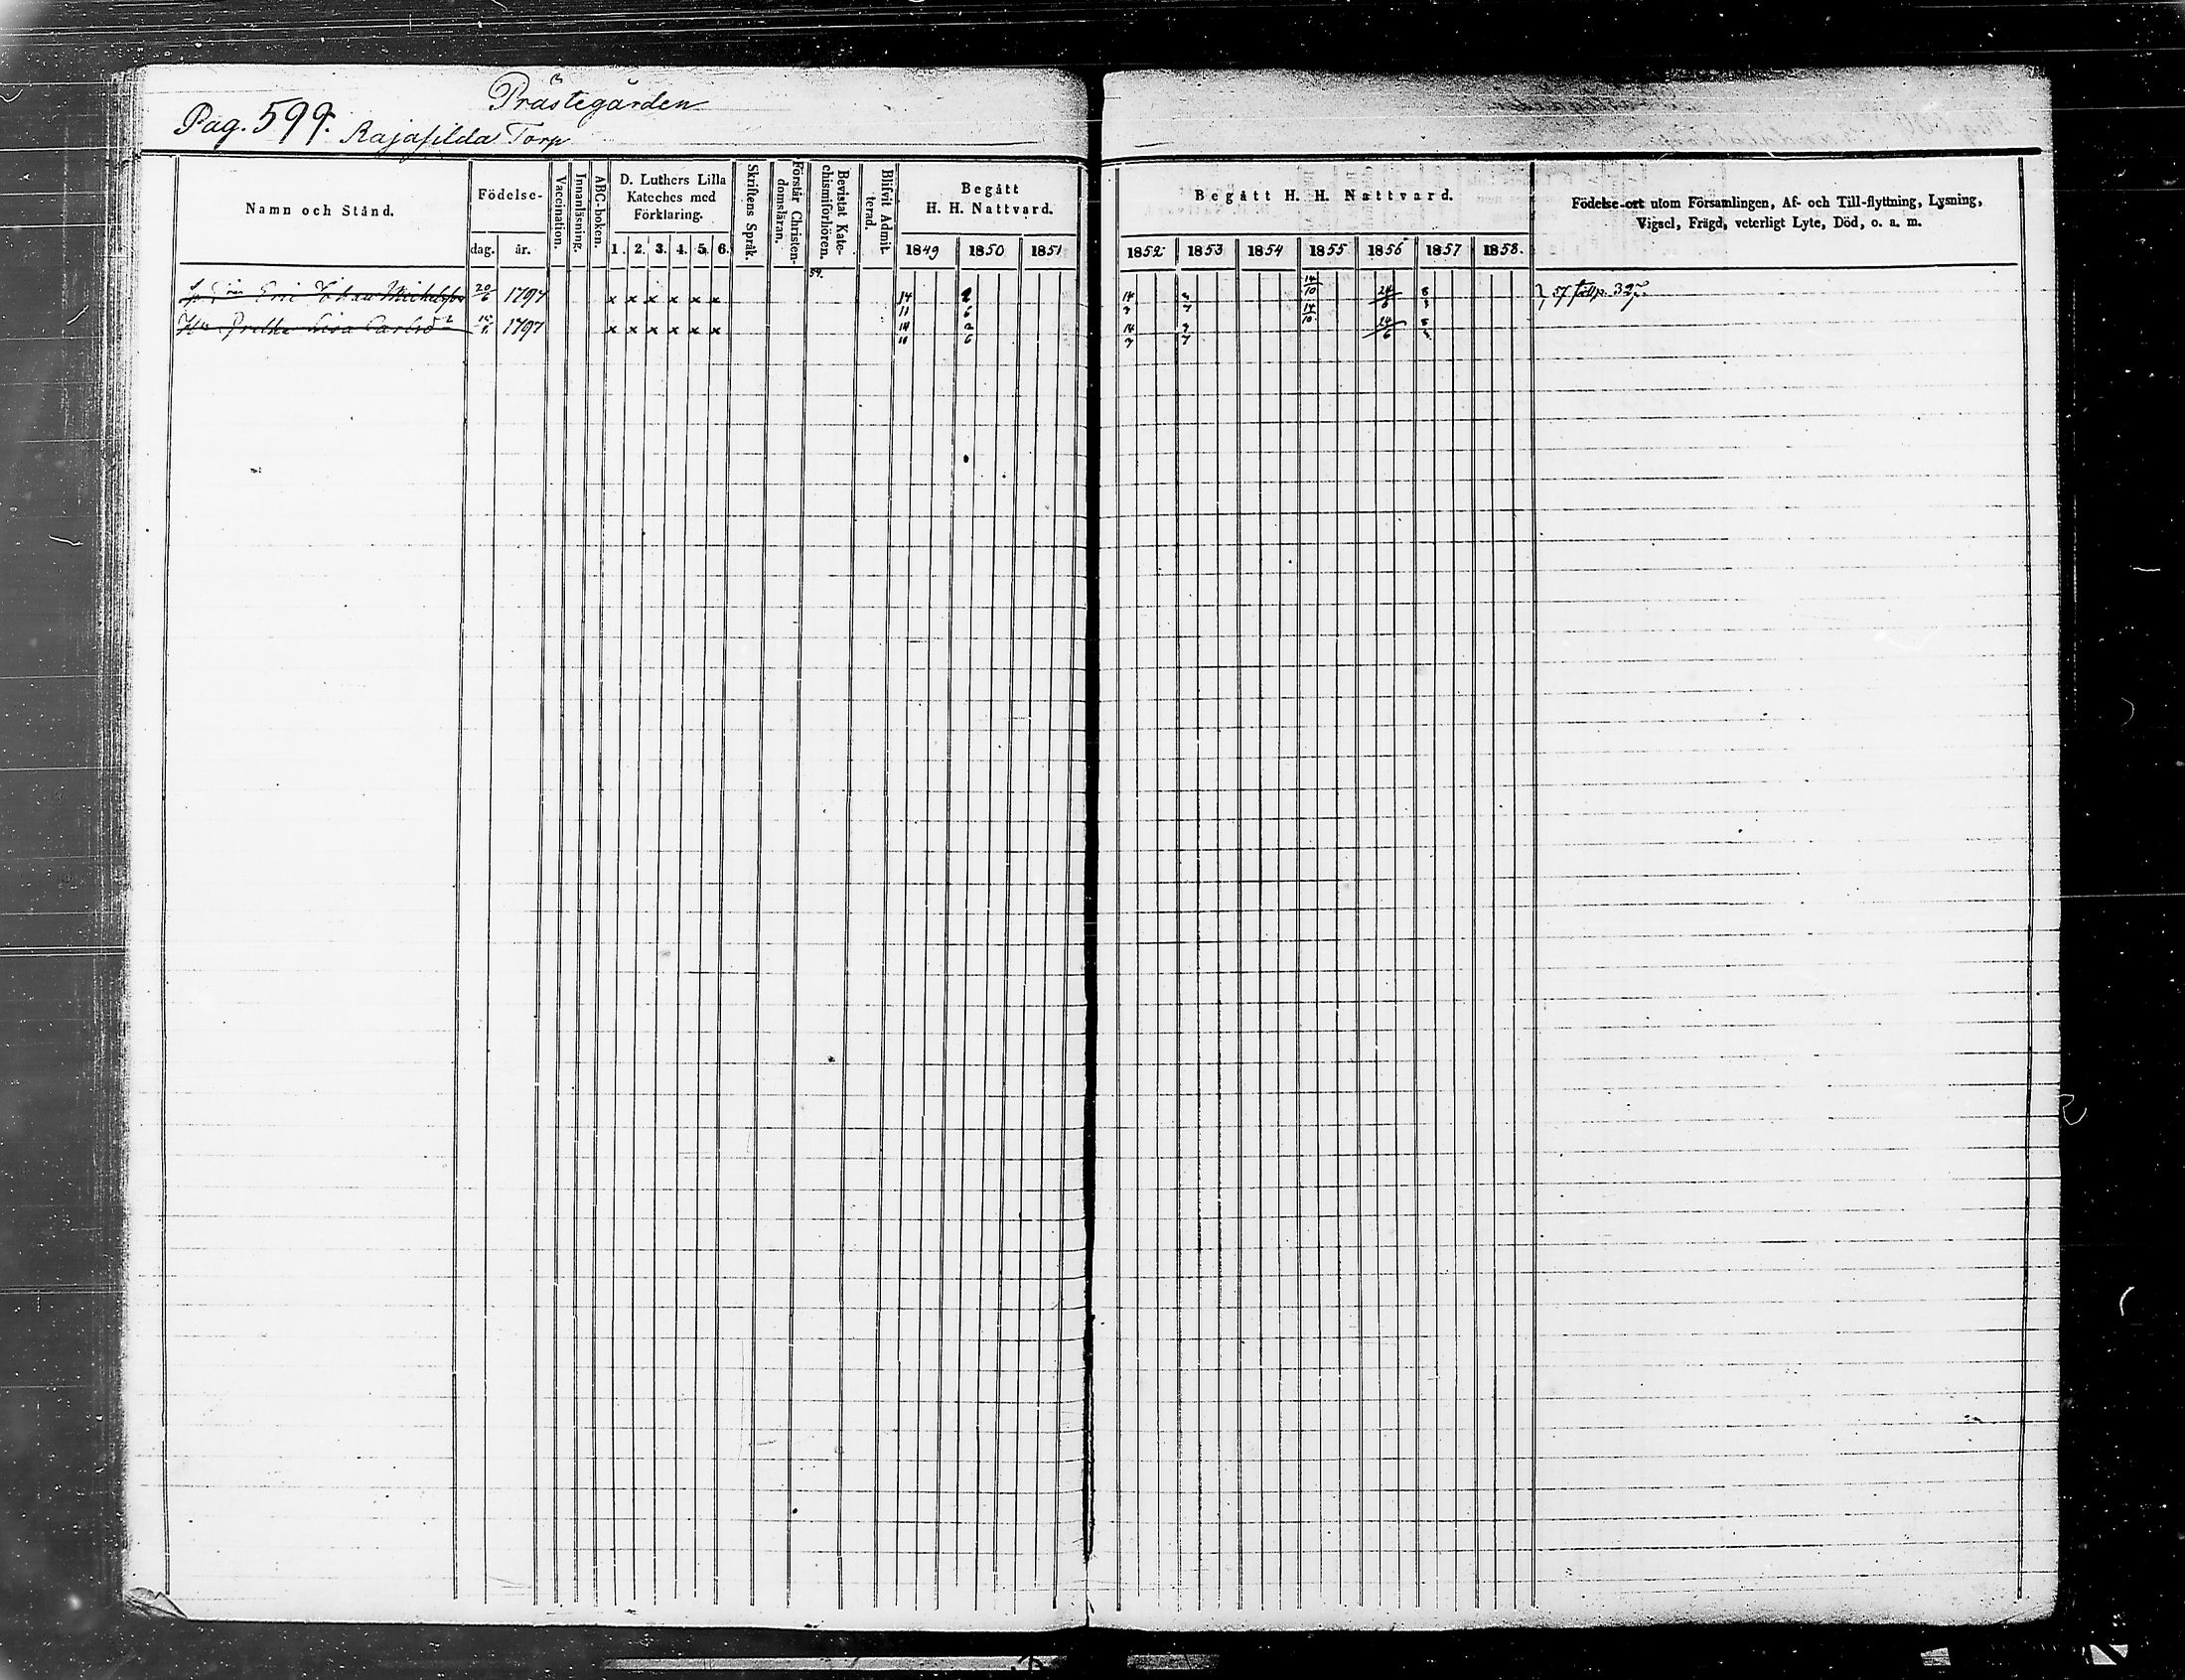 Prästegården
Pag. 599. Rajasilda Torp
Namn och Stånd.
Födelse-
dag. år.
Vaccination.
Innanläsning.
ABC-boken.
D. Luthers Lilla
Kateches med
Förklaring.
1. 2. 3. 4. 5. 6.
Skriftens Språk.
Förstår Christen-
domsläran.
Bevistat Kate-
chismiförhören.
Blifvit Admit-
terad.
Begått
H. H. Nattvard.
1849 1850 1851
Begått H. H. Nattvard.
1852 1853 1854 1855 1856 1857 1858.
Födelse-ort utom Församlingen, Af- och Till-flyttning, Lysning,
Vigsel, Frägd, veterligt Lyte, Död, o. a. m.
Eric Johan Michelsson 20/6 1797 x x x x x x 14/11 2/6 14/3 3/7 14/10 24/6 8/3 57 p. 327.
Hu Gretha Lisa Carlsd 1797 x x x x x x 14/11 2/6 14/3 3/7 14/10 24/6 8/3